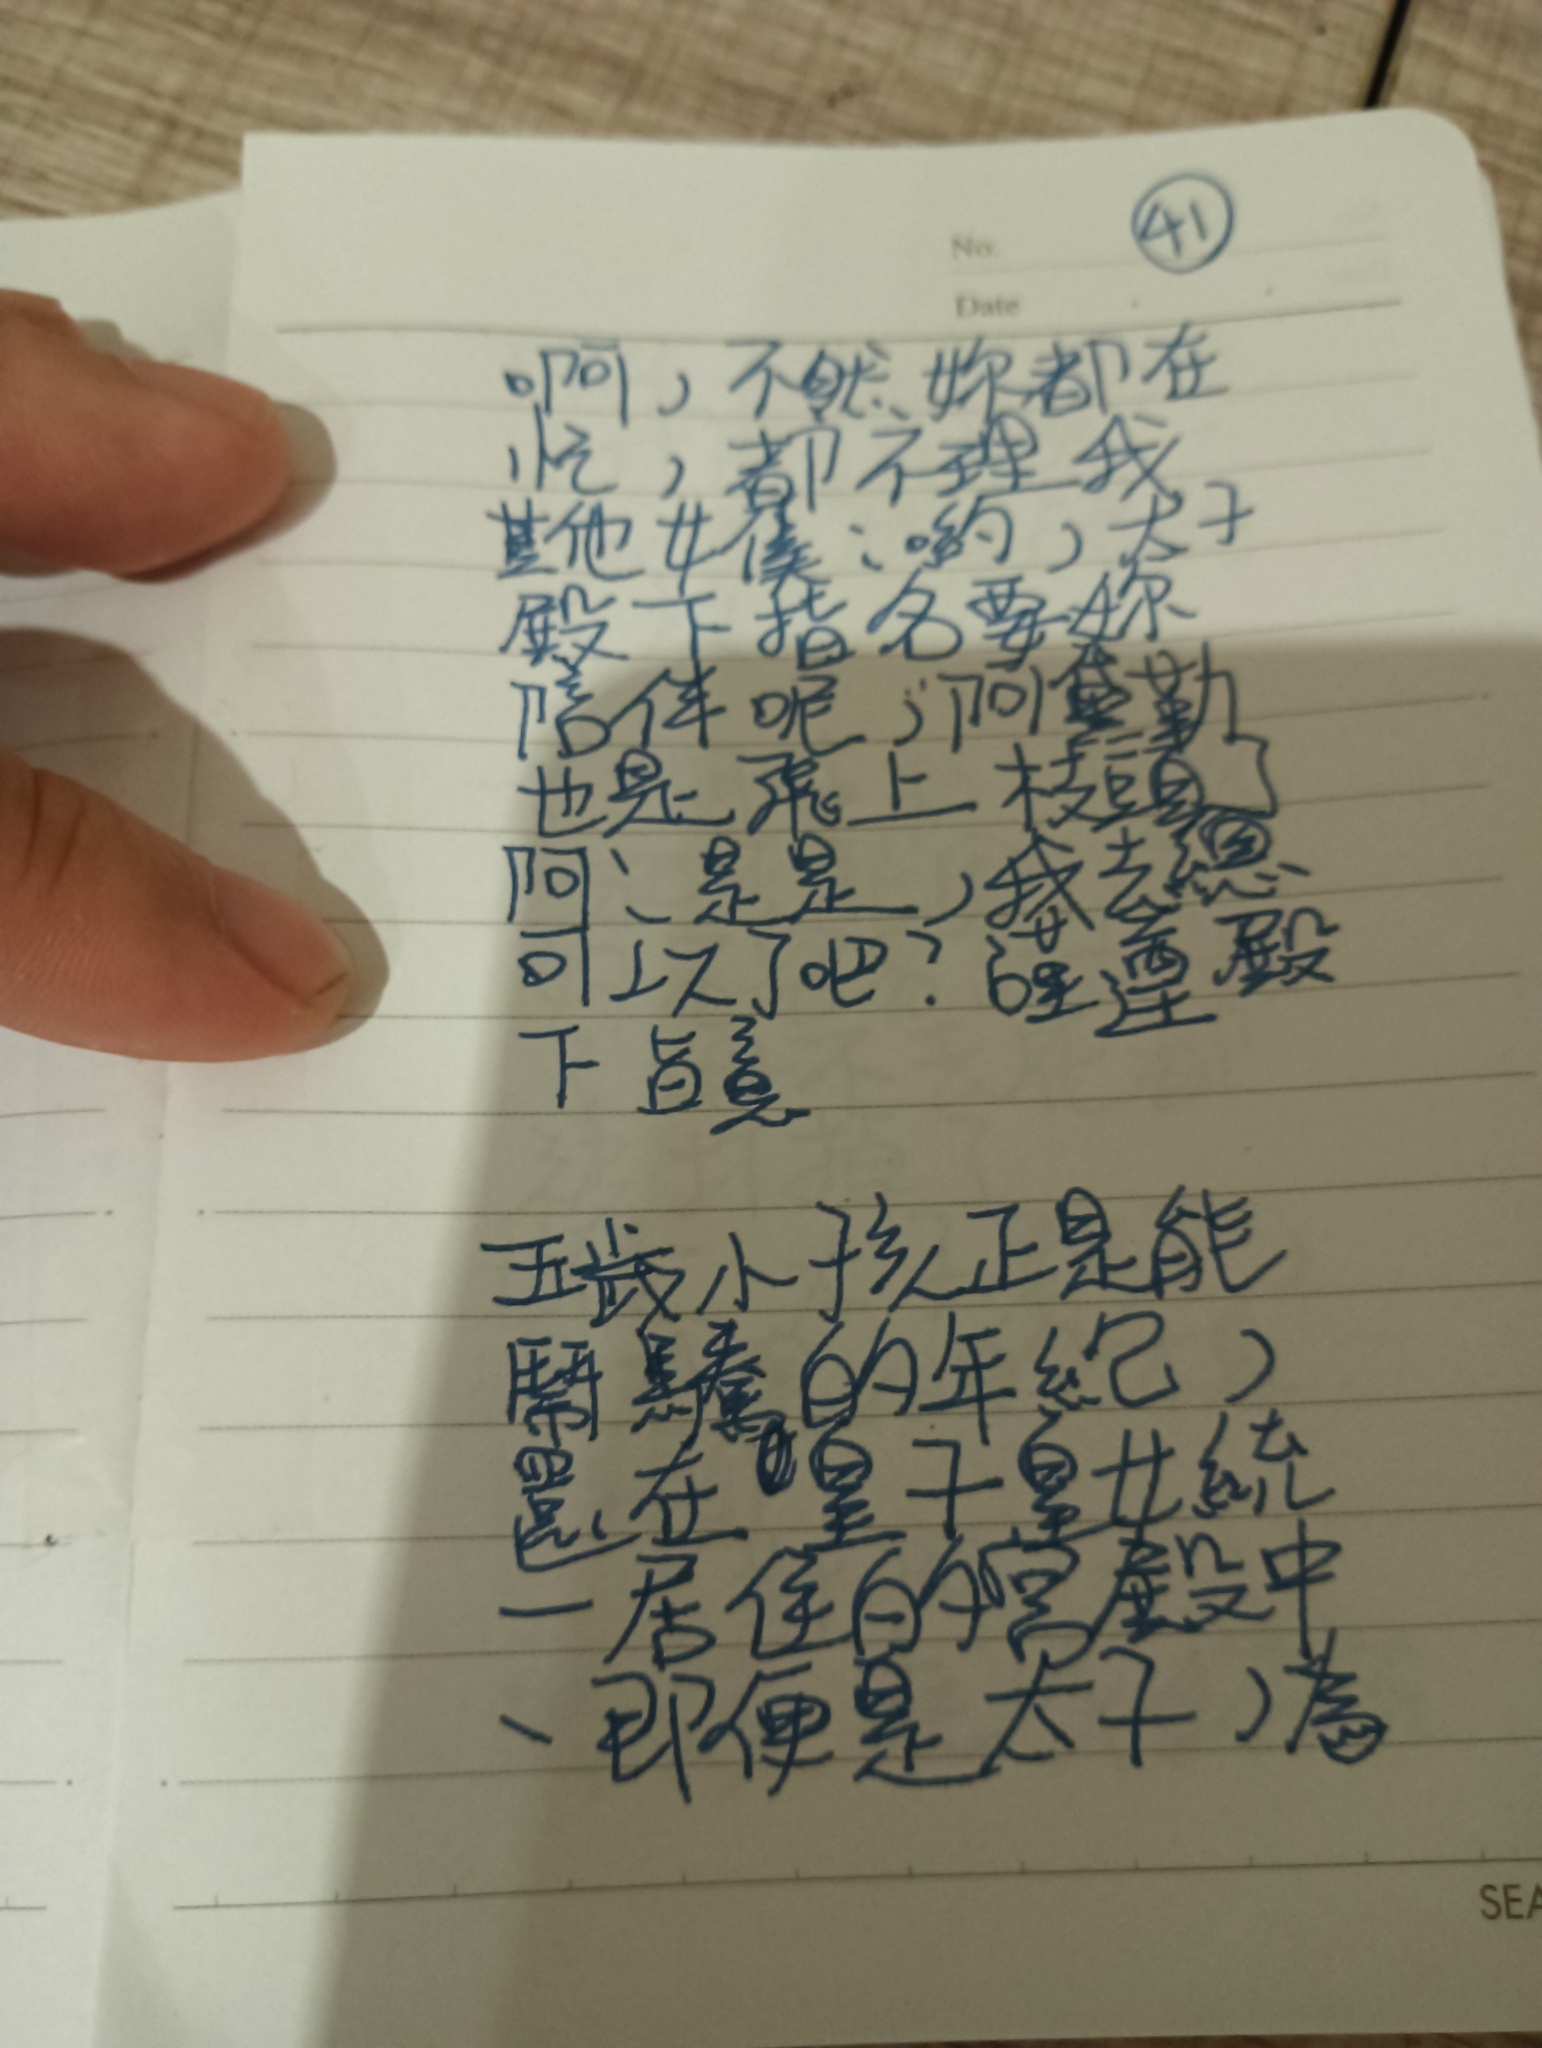 41
No.
Date
啊，不然妳都在
忙，都不理我
其他女僕：喲，太子
殿下指名要妳
陪伴呢；阿奎勒
也是飛上枝頭
阿：是是，我去總
可以了吧？謹遵殿
下旨意
五歲小孩正是能
鬧騰的年紀，
在皇子皇女統
一居住的宮殿中
、即便是太子，為
SEA